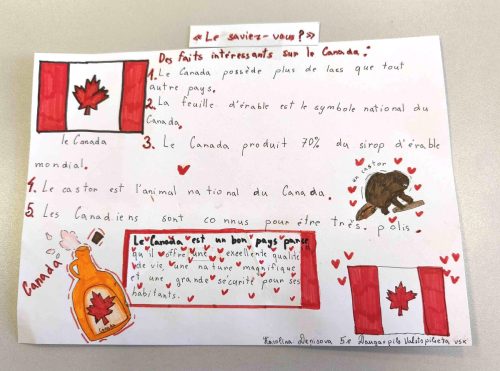 « Le saviez-vous ? »
Des faits intéressants sur le Canada :
1. Le Canada possède plus de lacs que tout
autre pays.
2. La feuille d'érable est le symbole national du
Canada.
le Canada
3. Le Canada produit 70% du sirop d'érable
mondial.
un castor
4. Le castor est l'animal national du Canada.
5. Les Canadiens sont connus pour être très polis.
Canada
Le Canada est un bon pays parce
qu'il offre une excellente qualité
de vie, une nature magnifique
et une grande sécurité pour ses
habitants.
Canada
Karolina Denisova 5.e Daugavpils Valstspilsēta vsk